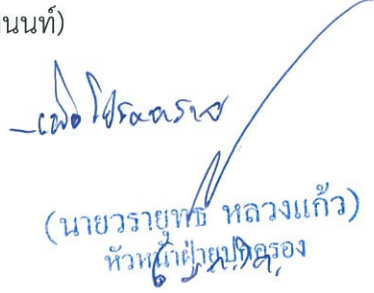 นนท์)
-เพื่อโปรดทราบ
(นายวรายุทธ หลวงแก้ว)
หัวหน้าฝ่ายปกครอง